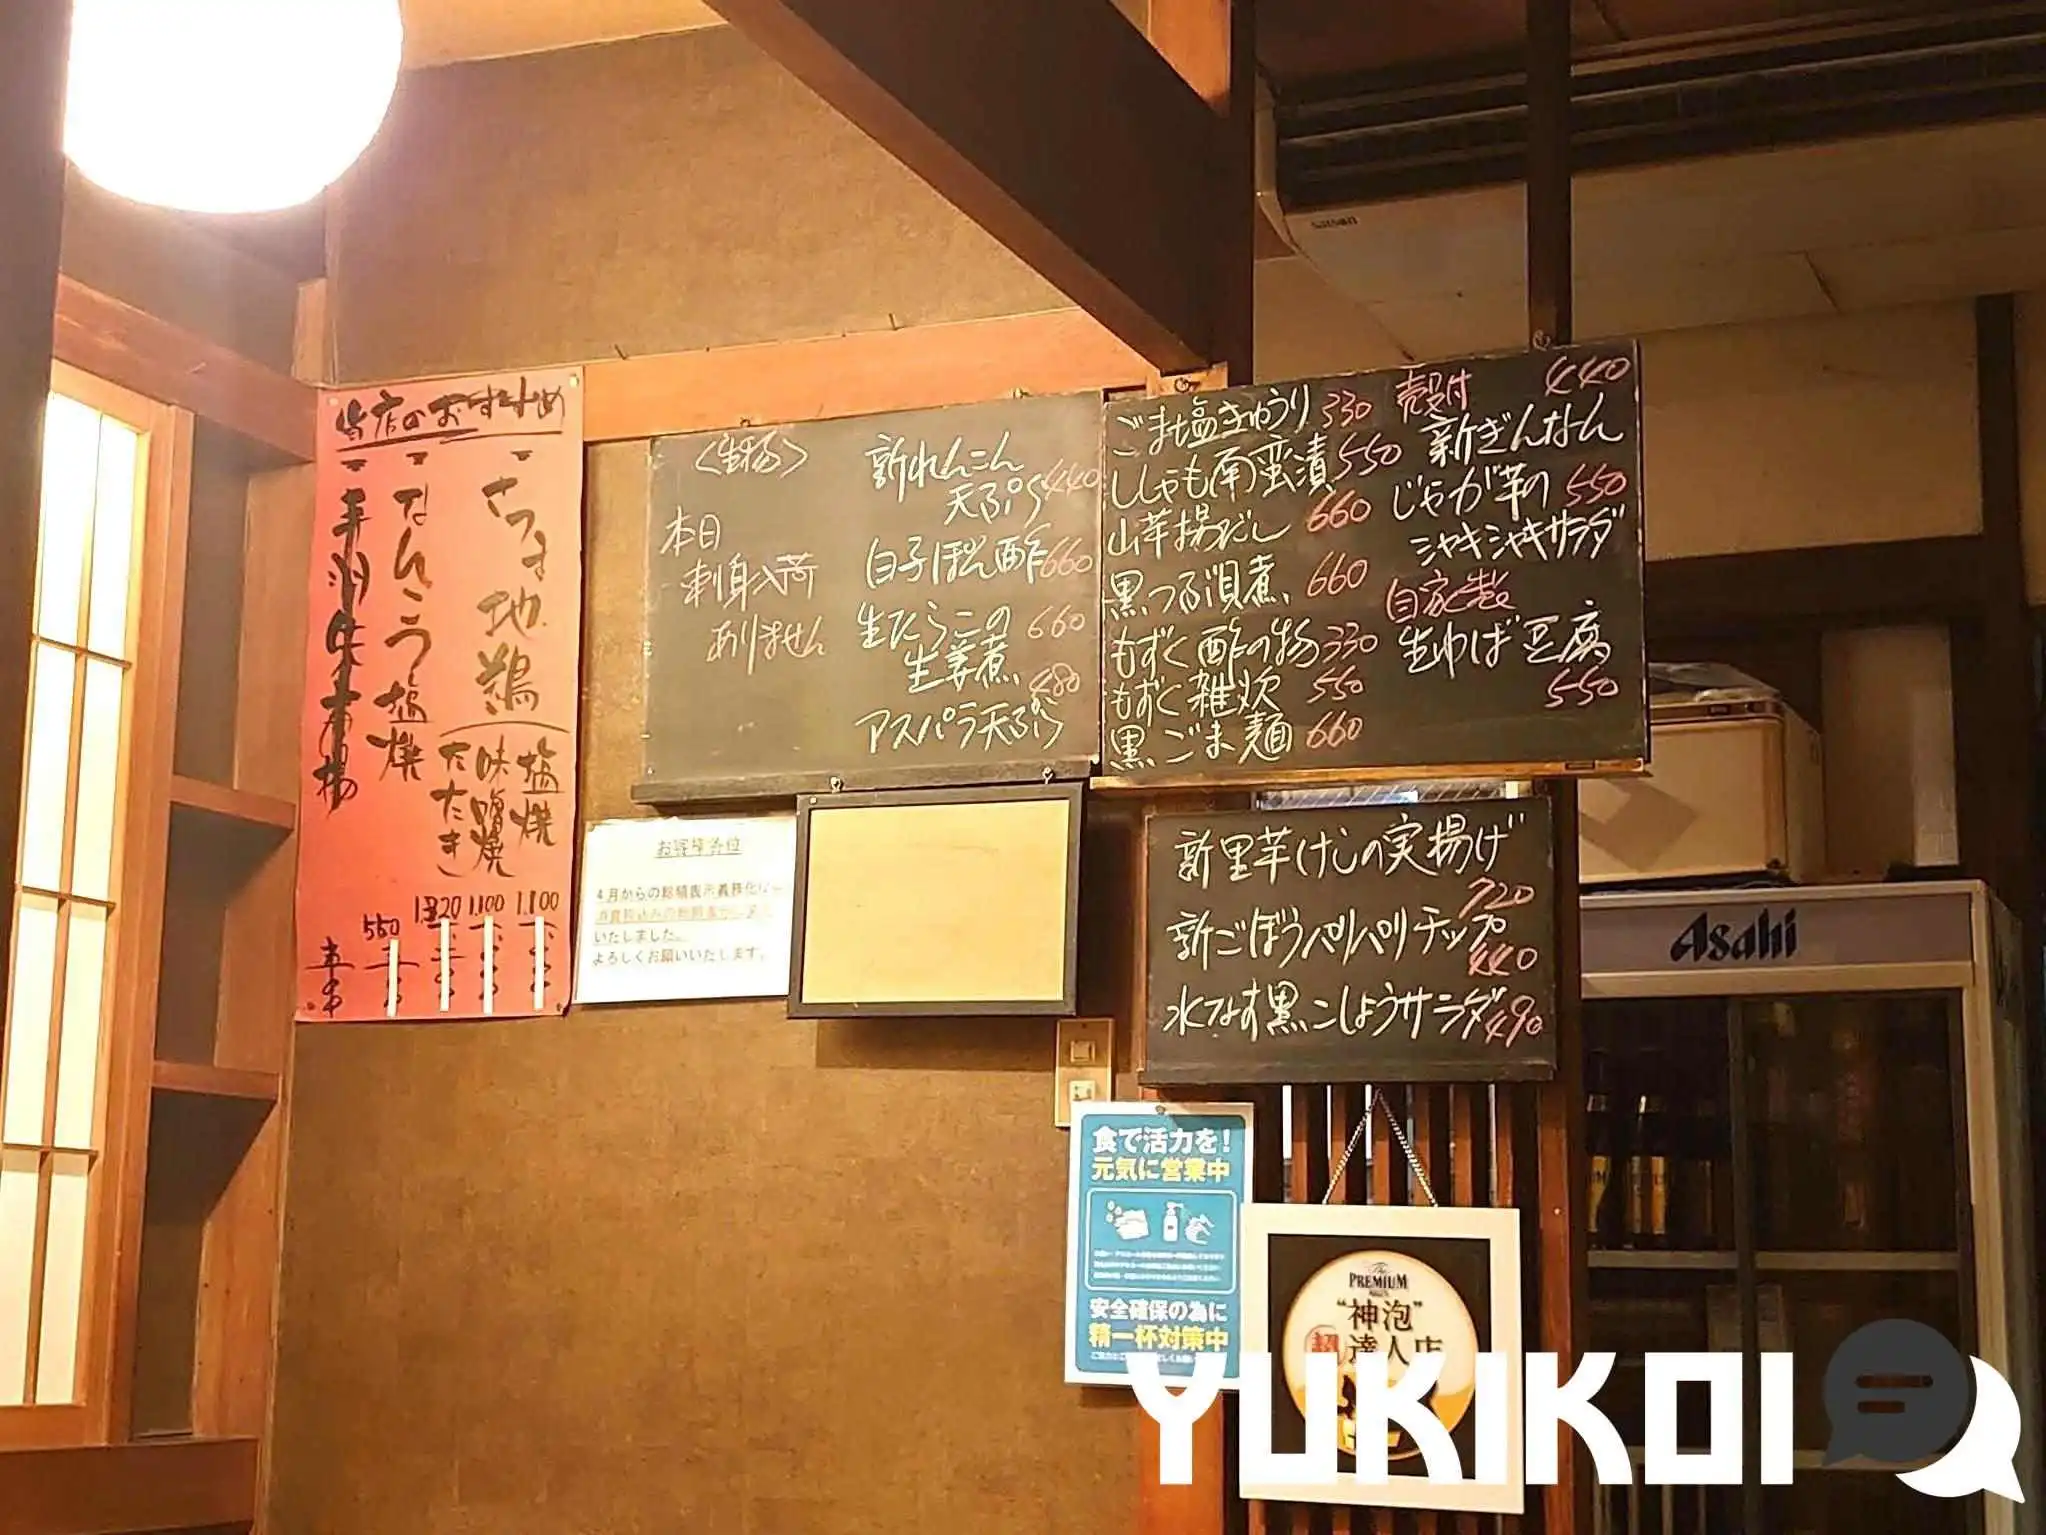 当店のおすすめ
さつま地鶏
塩焼
味噌焼
たたき
なんこつ塩焼
1.100
1.100
1320
550
<生物>
本日
刺身入荷
ありません
新れんこん
天ぷら 440
白子ぽん酢 660
生たらこの 660
生姜煮
480
アスパラ天ぷら
ごま塩きゅうり 330
ししゃも南蛮漬 550
山芋揚だし 660
黒つぶ貝煮 660
もずく酢の物 330
もずく雑炊 550
黒ごま麺 660
殻付 440
新ぎんなん
じゃが芋の 550
シャキシャキサラダ
自家製
生ゆば豆腐
550
新里芋けしの実揚げ
720
新ごぼうパリパリチップ
440
水なす黒こしょうサラダ 490
お客様各位
4月からの総額表示義務化に
いたしました。
よろしくお願いいたします。
食で活力を!
元気に営業中
安全確保の為に
精一杯対策中
The
PREMIUM
"神泡"
超達人店
Asahi
YUKIKOI